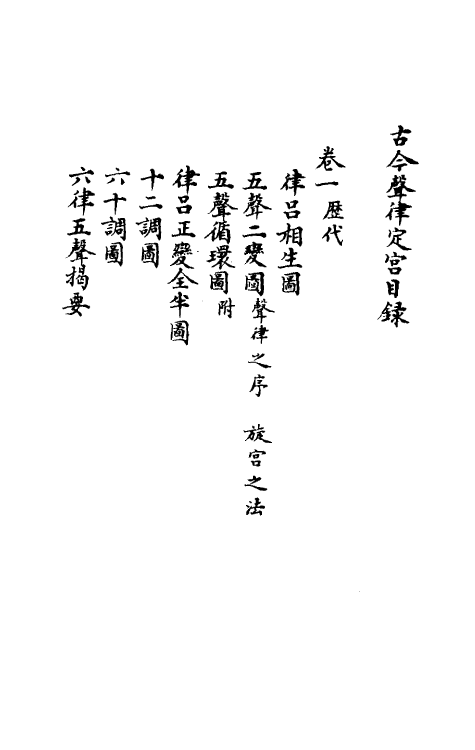 古今聲律定宮目録
卷一歴代
律吕相生圖
五聲二變圖聲律之序　旋宫之法
五聲循環圖附
律吕正變全半圖
十二調圖
六十調圖
六律五聲揭要